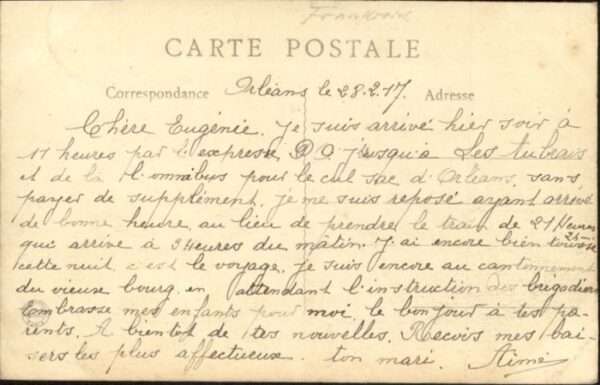 CARTE POSTALE
Correspondance Orléans le 28.2.17. Adresse
Chère Eugénie. Je suis arrivé hier soir à
11 heures par l'express P O. jusqu'à Les Aubrais
et de là l'omnibus pour le cul sac d'Orléans, sans
payer de supplément. je me suis reposé ayant arrivé
de bonne heure au lieu de prendre le train de 21 Heures
qui arrive à 3 Heures du matin. J'ai encore bien toussé
cette nuit, c'est le voyage. je suis encore au cantonnement
du vieux bourg en attendant l'instruction des brigadiers
Embrasse mes enfants pour moi, le bonjour à tes pa-
rents. A bientot de tes nouvelles. Recois mes bai-
sers les plus affectueux. ton mari. Aimé